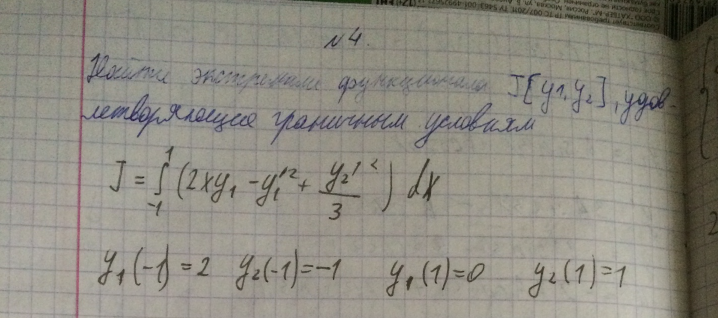 №4.
Найти экстремали функционала J[y1,y2], удов-
летворяющие граничным условиям
J = ∫₋₁¹ (2xy₁ - y₁'² + y₂'²/3) dx
y₁(-1)=2 y₂(-1)=-1 y₁(1)=0 y₂(1)=1